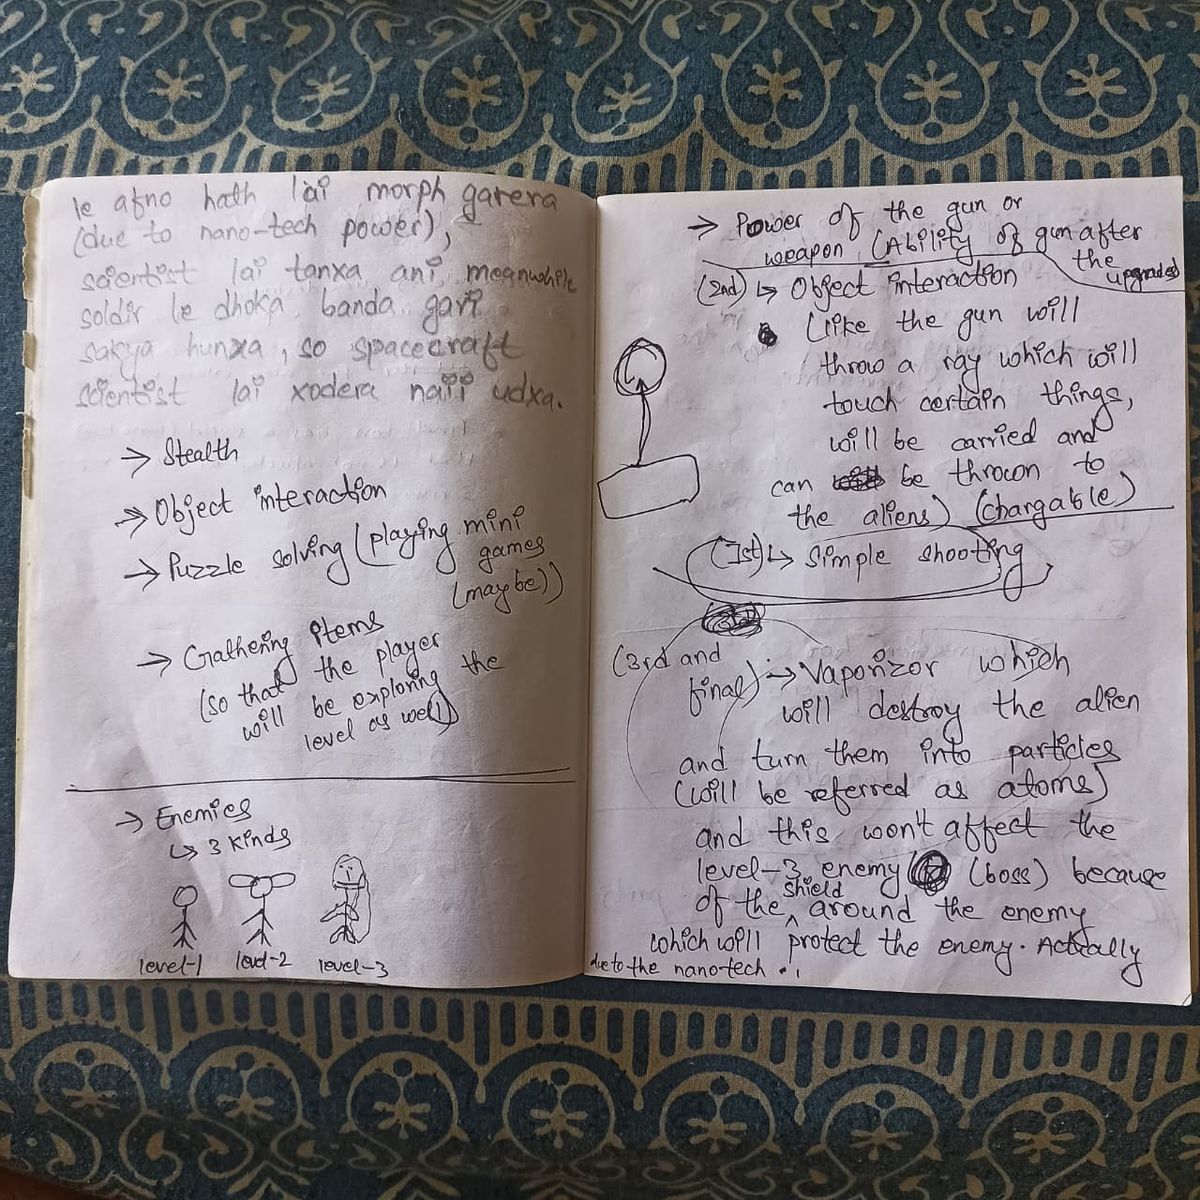 le afno hath lai morph garera
(due to nano-tech power),
scientist lai tanxa ani, meanwhile
soldir le dhoka banda gari
sakya hunxa, so spacecraft
scientist lai xodera naii udxa.
→ Stealth
→ Object interaction
→ Puzzle solving (playing mini
games
(maybe))
→ Gathering items
(so that the player
will be exploring the
level as well)
→ Enemies
↳ 3 kinds
level-1 level-2 level-3
→ Power of the gun or
weapon (Ability of gun after
the upgraded
(2nd) ↳ Object interaction
(like the gun will
throw a ray which will
touch certain things,
will be carried and
can be thrown to
the aliens) (chargable)
(1st) ↳ Simple shooting
(3rd and
final) → Vaporizor which
will destroy the alien
and turn them into particles
(will be referred as atoms)
and this won't affect the
level-3 enemy (boss) because
of the shield around the enemy
which will protect the enemy. Actually
due to the nano-tech.